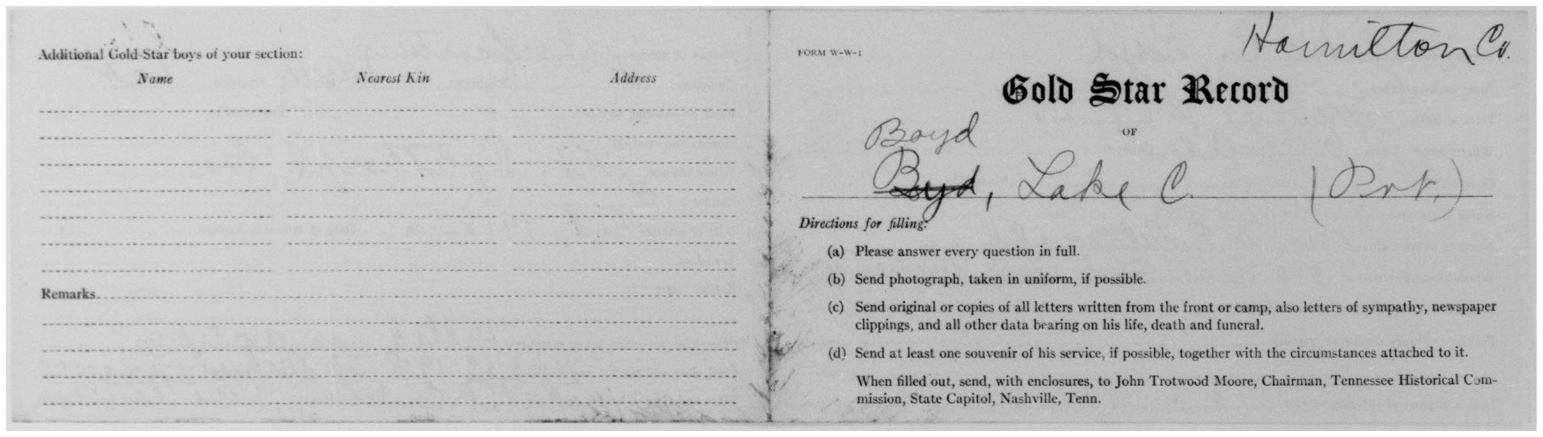 Additional Gold-Star boys of your section:
Name Nearest Kin Address
Remarks
Hamilton Co.
FORM W-W-1
Gold Star Record
OF
Boyd
Byd, Lake C. (Pvt.)
Directions for filling:
(a) Please answer every question in full.
(b) Send photograph, taken in uniform, if possible.
(c) Send original or copies of all letters written from the front or camp, also letters of sympathy, newspaper
clippings, and all other data bearing on his life, death and funeral.
(d) Send at least one souvenir of his service, if possible, together with the circumstances attached to it.
When filled out, send, with enclosures, to John Trotwood Moore, Chairman, Tennessee Historical Com-
mission, State Capitol, Nashville, Tenn.